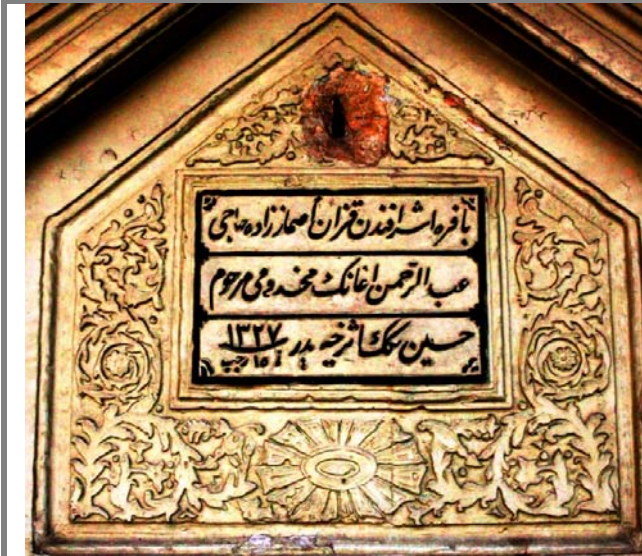 بافره اشرافندن قزان أصماز زاده حاجى
عبد الرحمن اغانك مخدومى مرحوم
حسين بكك اثر خيريدر ١٣٢٧ ١٥ رجب